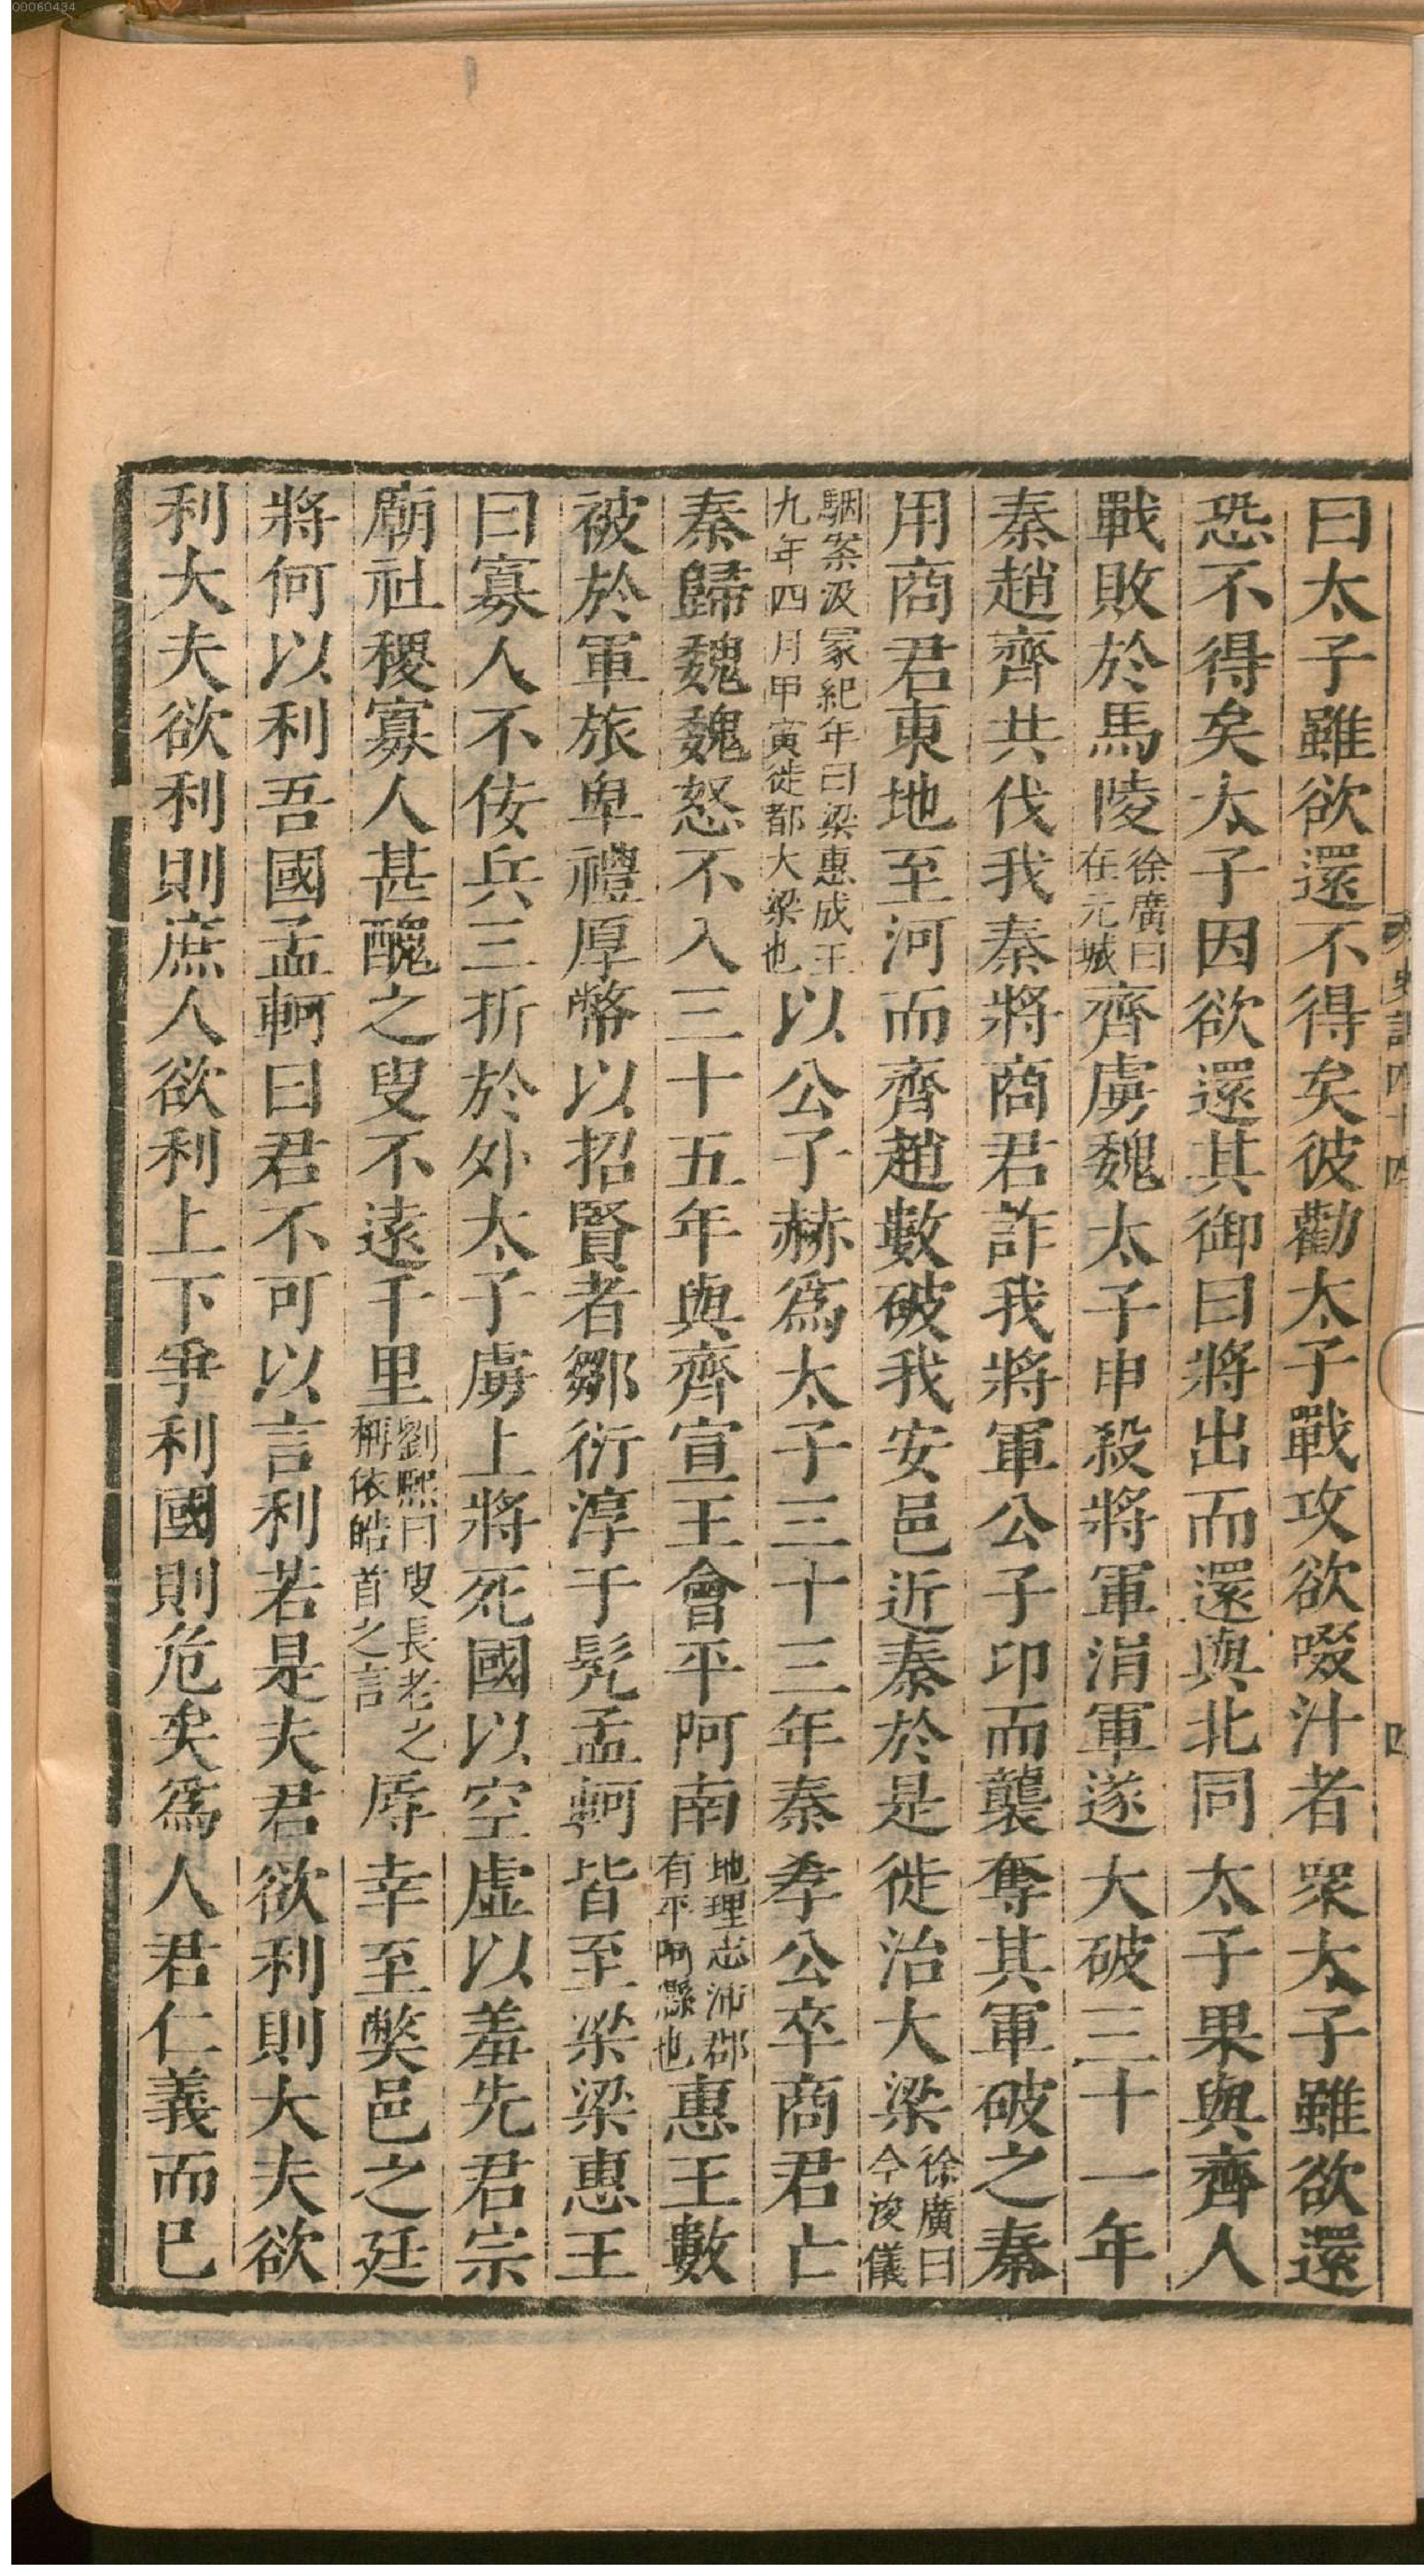 00060434
史記四十四
四
曰太子雖欲還不得矣彼勸太子戰攻欲啜汁者眾太子雖欲還
恐不得矣太子因欲還其御曰將出而還與北同太子果與齊人
戰敗於馬陵徐廣曰在元城齊虜魏太子申殺將軍涓軍遂大破三十一年
秦趙齊共伐我秦將商君詐我將軍公子卬而襲奪其軍破之秦
用商君東地至河而齊趙數破我安邑近秦於是徙治大梁徐廣曰今浚儀
駰案汲冢紀年曰梁惠成王九年四月甲寅徙都大梁也以公子赫爲太子三十三年秦孝公卒商君亡
秦歸魏魏怒不入三十五年與齊宣王會平阿南地理志沛郡有平阿縣也惠王數
被於軍旅卑禮厚幣以招賢者鄒衍淳于髡孟軻皆至梁梁惠王
曰寡人不佞兵三折於外太子虜上將死國以空虛以羞先君宗
廟社稷寡人甚醜之叟不遠千里劉熙曰叟長老之稱依皓首之言辱幸至獘邑之廷
將何以利吾國孟軻曰君不可以言利若是夫君欲利則大夫欲
利大夫欲利則庶人欲利上下爭利國則危矣爲人君仁義而已